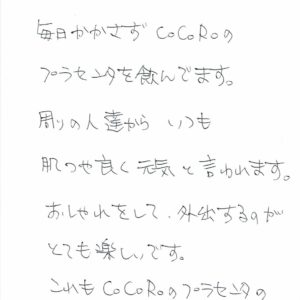 毎日かかさず CoCoRoの
プラセンタを飲んでます。
周りの人達から いつも
肌つや良く元気と言われます。
おしゃれをして、外出するのが
とても楽しいです。
これもCoCoRoのプラセンタの